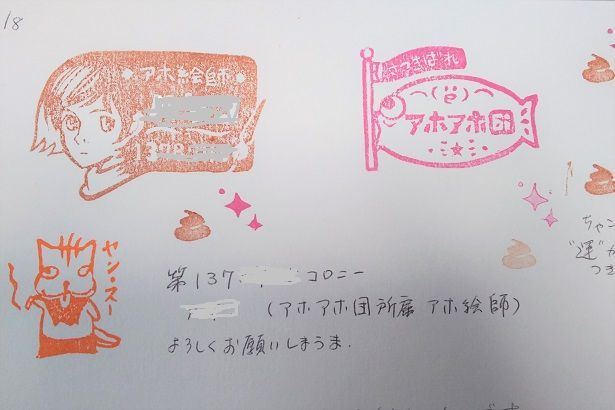 18
アホ絵師
さつきばれ
アホアホ団
ヤン・スー
第137 コロニー
(アホアホ団所属 アホ絵師)
よろしくお願いしまうま.
ちゃん
"運"が
つき